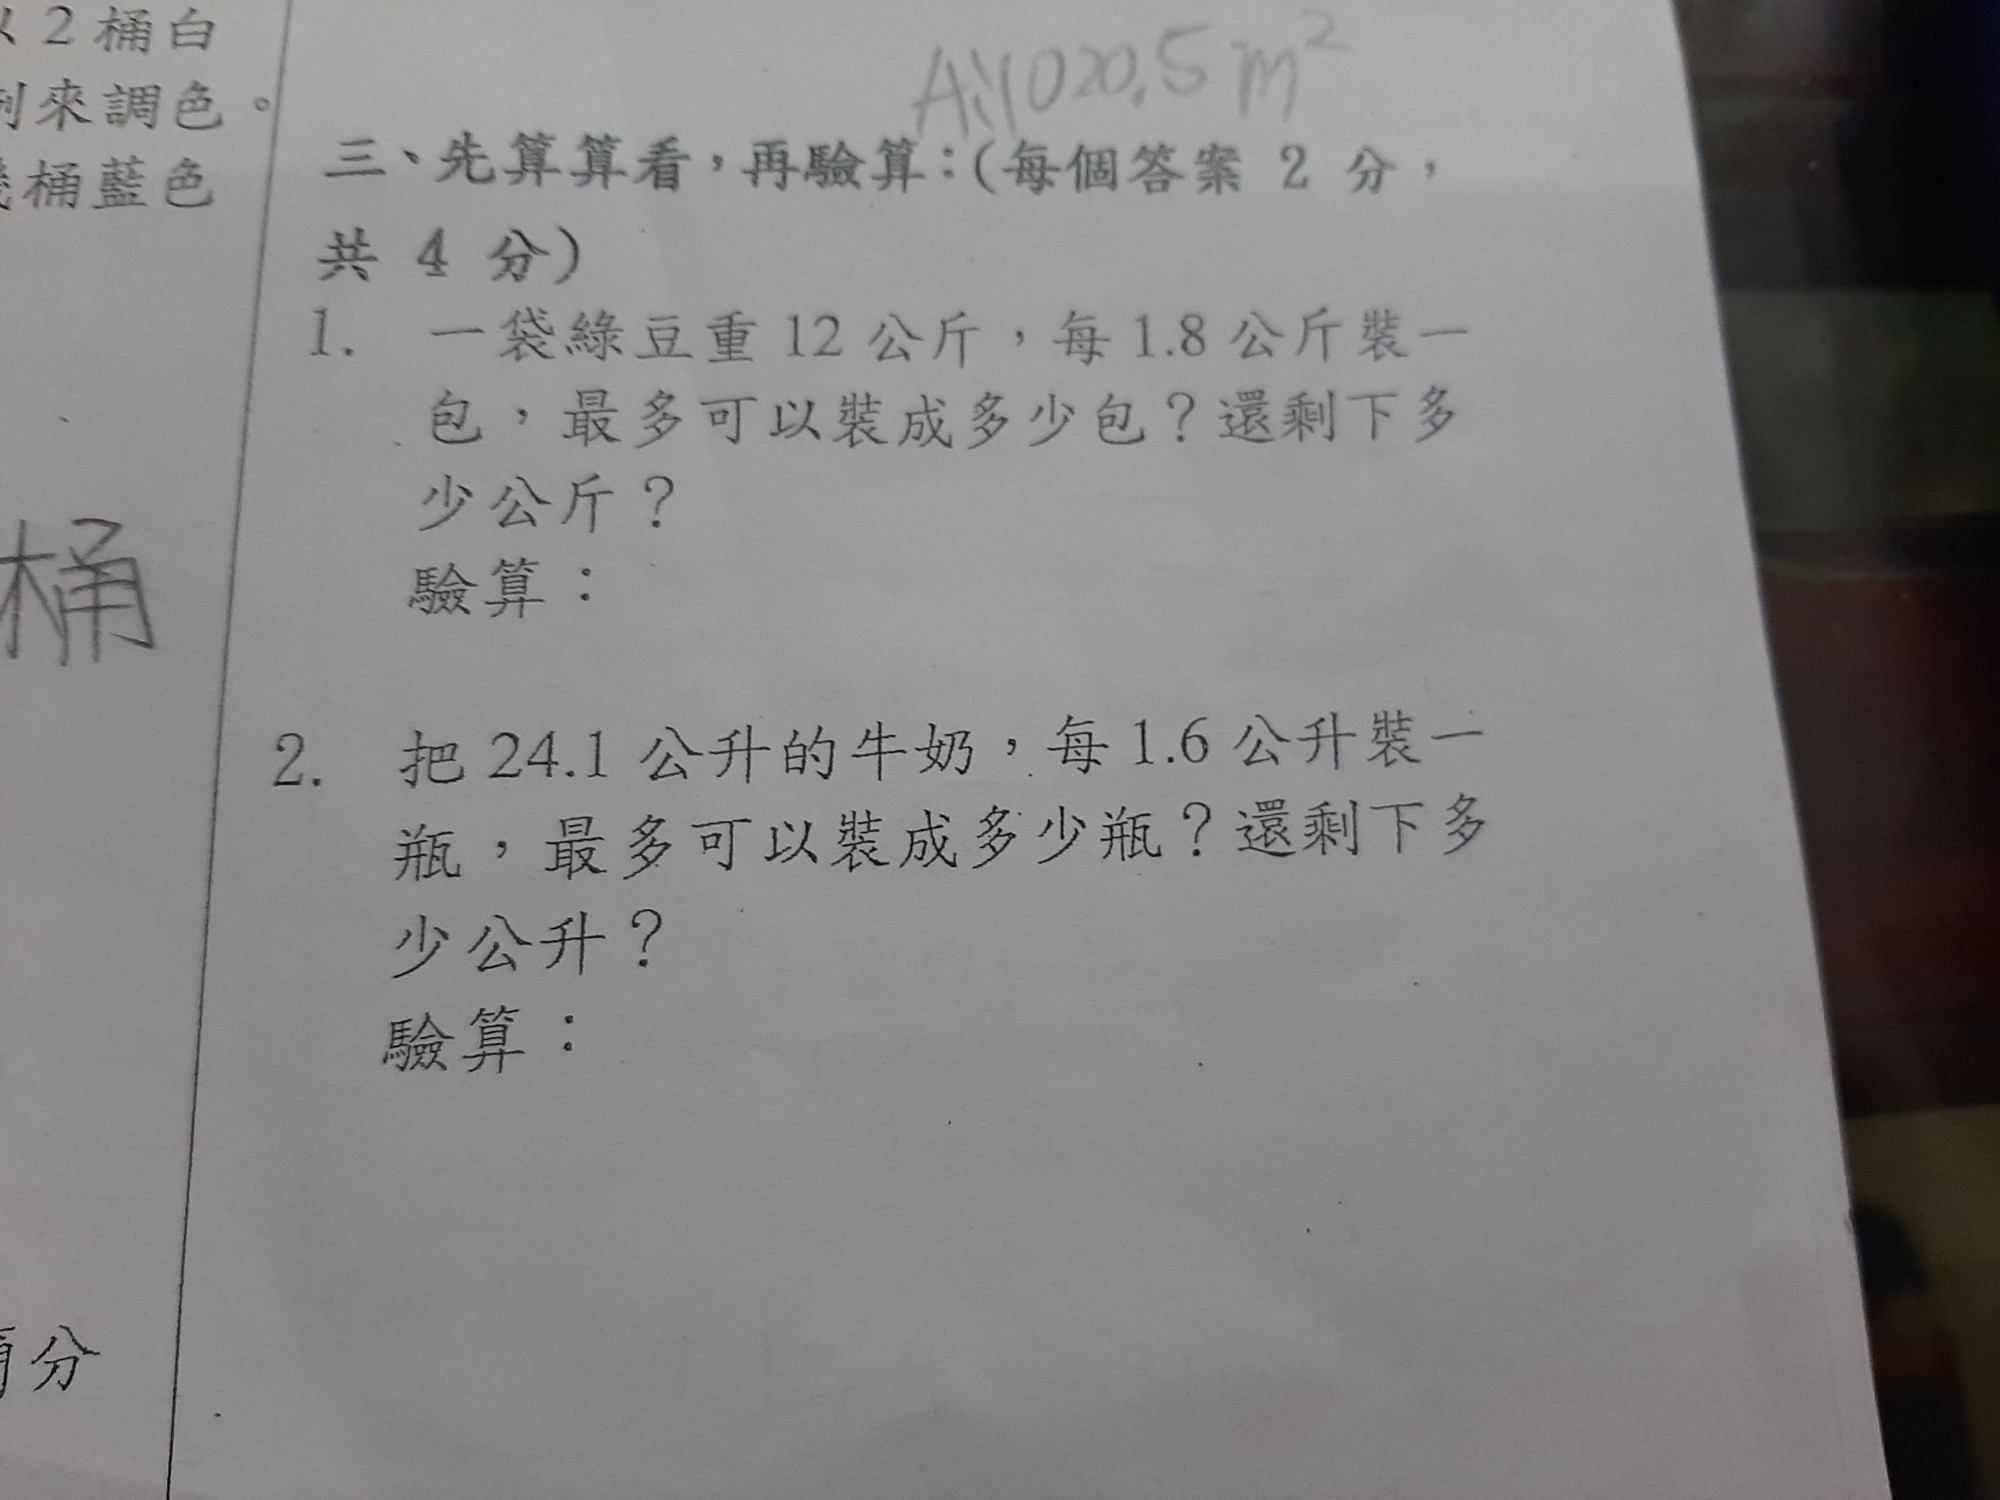 2桶白
來調色。
桶藍色
桶
分
A:1020.5m²
三、先算算看，再驗算：(每個答案 2 分，
共 4 分)
1. 一袋綠豆重12公斤，每1.8公斤裝一
包，最多可以裝成多少包？還剩下多
少公斤？
驗算：
2. 把24.1公升的牛奶，每1.6公升裝一
瓶，最多可以裝成多少瓶？還剩下多
少公升？
驗算：